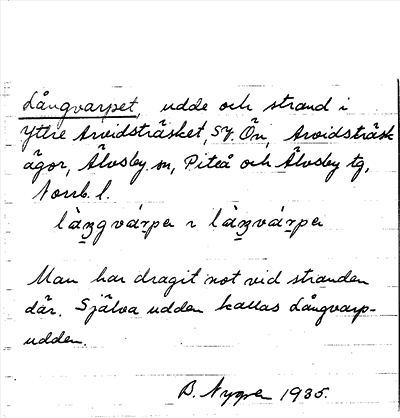 Långvarpet, udde och strand i
Yttre Arvidsträsket, SV. Ön, Arvidsträsk
ägor, Älvsby sn, Piteå och Älvsby tg,
Norrb. l.
Man har dragit not vid stranden
där. Själva udden kallas Långvarp-
udden.
B. Nygren 1935.